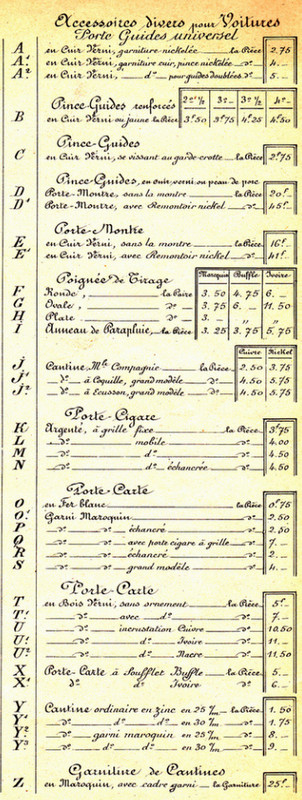 Accessoires divers pour Voitures
Porte Guides universel
A en Cuir Verni, garniture nickelée la Pièce 2.75
A¹ en Cuir Verni, garniture cuir, pince nickelée d° 4. "
A² en Cuir Verni, d° pour guides doublées d° 5. "
Pince-Guides renforcés 2=½ 3= 3=½ 4=
B en Cuir Verni ou jaune la Pièce 3.50 3.75 4.25 4.50
Pince-Guides
C en Cuir Verni, se vissant au garde-crotte la Pièce 2f.75
Pince-Guides, en cuir verni ou peau de porc
D Porte-Montre, sans la montre la Pièce 20f. "
D¹ Porte-Montre, avec Remontoir nickel d° 45f. "
Porte-Montre
E en Cuir Verni, sans la montre la Pièce 16f. "
E¹ en Cuir Verni, avec Remontoir nickel d° 41f. "
Poignée de Tirage Maroquin Buffle Ivoire
F Ronde, la Paire 3.50 4.75 6. "
G Ovale, d° 3.75 6. " 11.50
H Plate d° 3. " " "
I Anneau de Parapluie, la Pièce 3.25 3.75 5.75
Cuivre Nickel
J Cantine, Mle Compagnie la Pièce 2.50 3.75
J¹ d° à Coquille, grand modèle d° 4.50 5.75
J² d° à Ecusson, grand modèle d° 4.50 5.75
Porte Cigare
K Argenté, à grille fixe la Pièce 3f.75
L d° mobile d° 4.00
M d° d° d° 4.50
N d° d° échancrée d° 4.50
Porte-Carte
O en Fer blanc la Pièce 0f.75
O¹ Garni Maroquin d° 2.50
P d° échancré d° 2.50
Q d° avec porte cigare à grille d° 7. "
R d° échancré d° 2. "
S d° grand modèle d° 4. "
Porte-Carte
T en Bois Verni, sans ornement la Pièce 5f. "
T¹ d° avec d° d° 7. "
U d° incrustation Cuivre d° 10.50
U¹ d° d° Ivoire d° 11. "
U² d° d° Nacre d° 11.50
X Porte-Carte à Soufflet Buffle la Pièce 5. "
X¹ d° d° Ivoire d° 6. "
Y Cantine ordinaire en zinc en 25 c/m la Pièce 1.50
Y¹ d° d° d° en 30 c/m d° 1.75
Y² d° garni maroquin en 25 c/m d° 8. "
Y³ d° d° d° en 30 c/m d° 9. "
Garniture de Cantines
Z en Maroquin, avec cadre garni la Garniture 25f. "